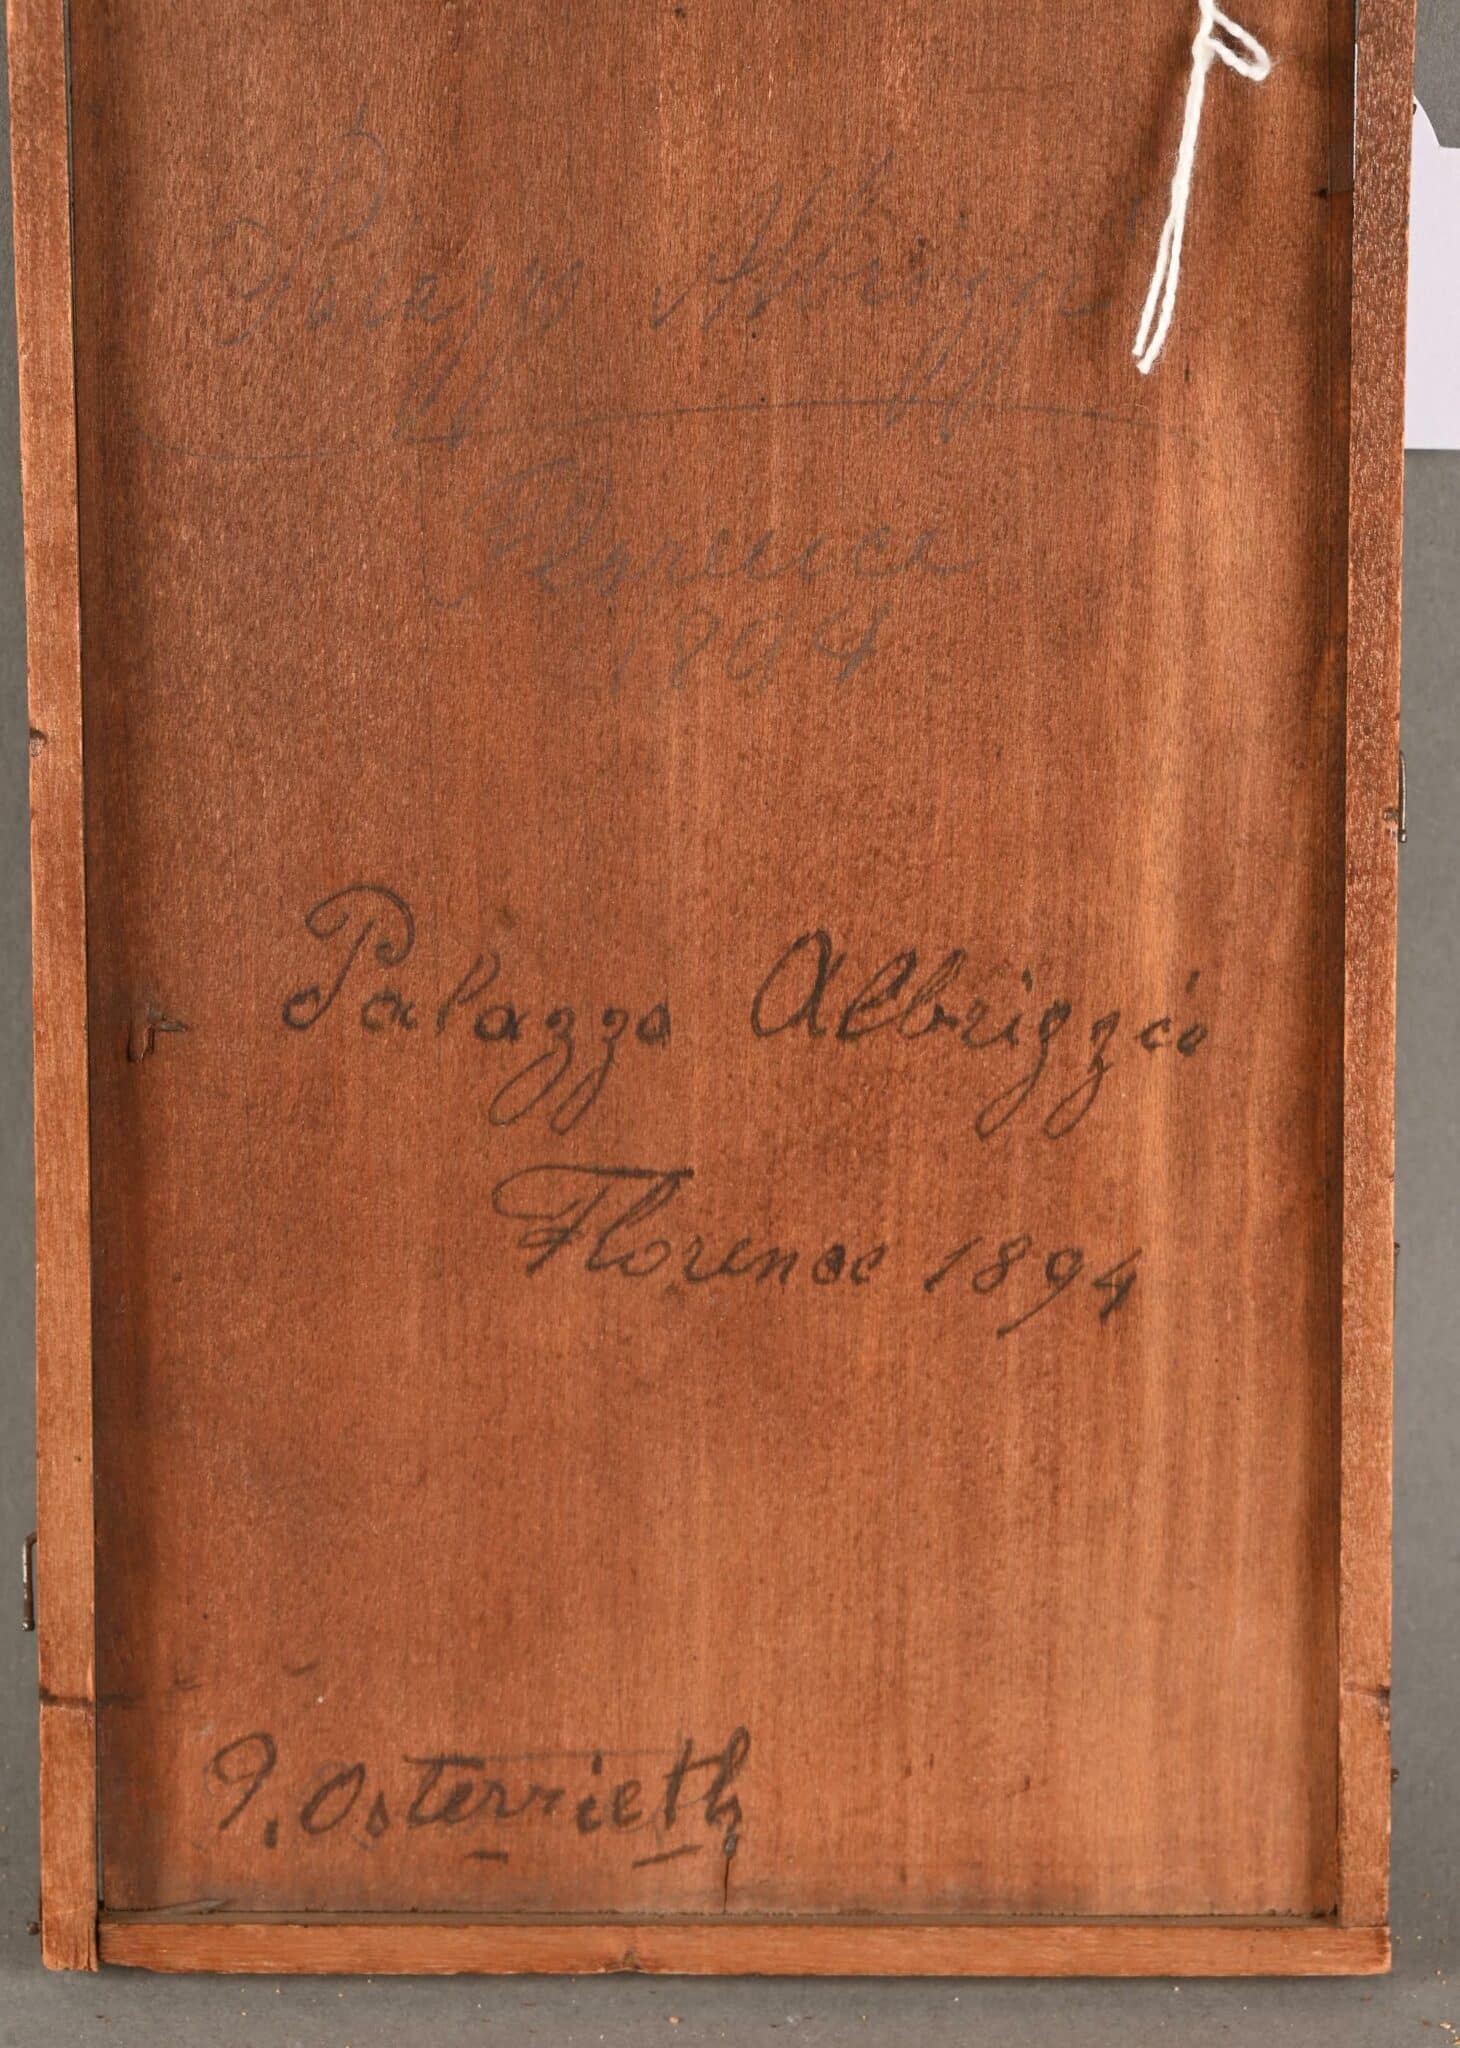 Palazzo Albrizzi
Florence
1894
Palazzo Albrizzi
Florence 1894
J. Osterrieth